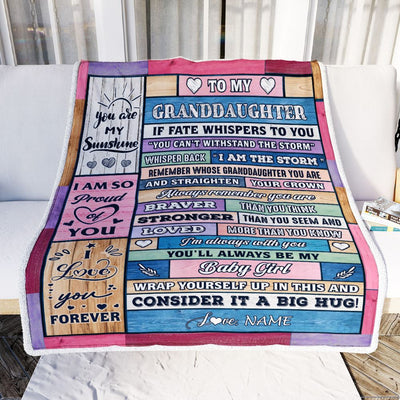 You are
MY
Sunshine
I AM SO
Proud
of
YOU
I
Love
you
FOREVER
TO MY
GRANDDAUGHTER
IF FATE WHISPERS TO YOU
"YOU CAN'T WITHSTAND THE STORM"
WHISPER BACK "I AM THE STORM"
REMEMBER WHOSE GRANDDAUGHTER YOU ARE
AND STRAIGHTEN YOUR CROWN
Always remember you are
BRAVER THAN YOU THINK
STRONGER THAN YOU SEEM AND
LOVED MORE THAN YOU KNOW
I'm always with you
YOU'LL ALWAYS BE MY
Baby Girl
WRAP YOURSELF UP IN THIS AND
CONSIDER IT A BIG HUG!
Love, NAME